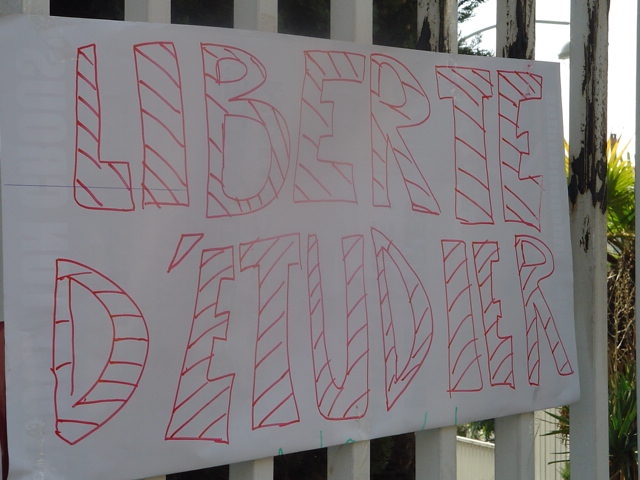 LIBERTE
D'ETUDIER